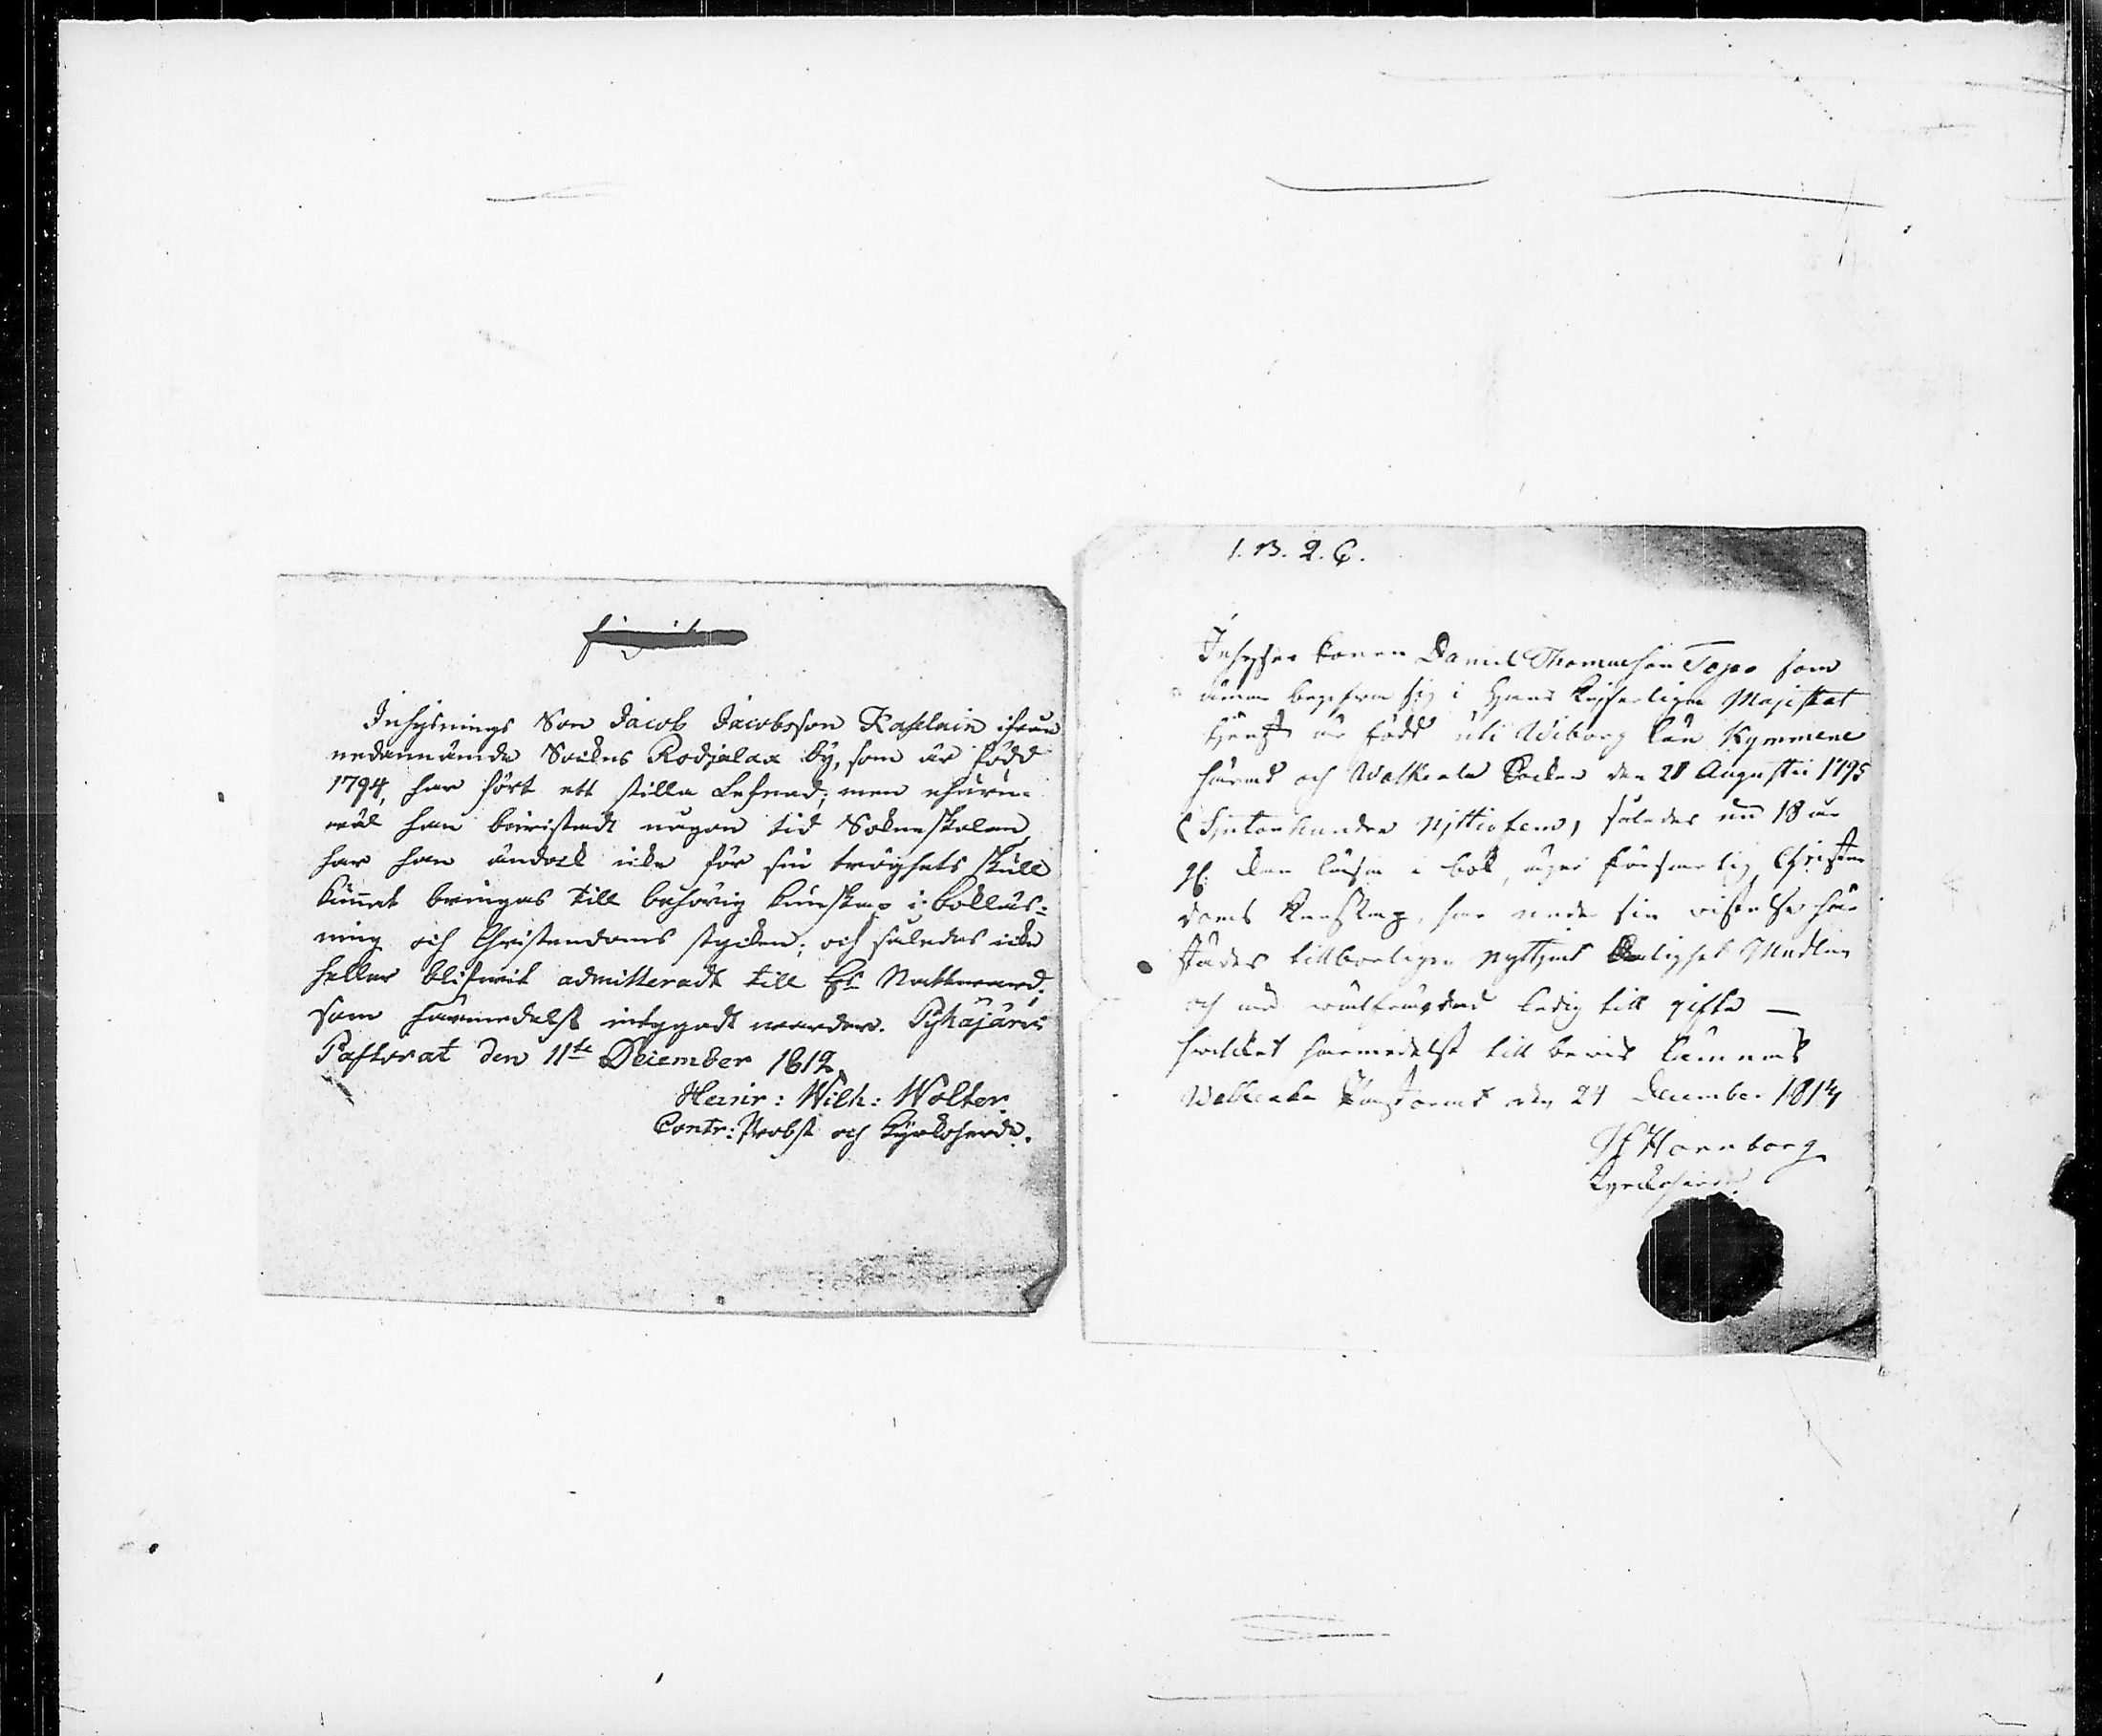 Inhysnings Son Jacob Jacobsson Kaplain ifrån
nedannämde Sockns Rodjalax by, som är född
1794, har fört ett stilla Lefnad; men ehuru-
wäl han beviistadt någon tid Sokneskolan,
har han ändock icke för sin tröghets skull
kunnat bringas till behörig kunskap i Bokläs-
ning och Christendoms stycken; och således icke
heller blifwit admitteradt till Hs Nattward;
som härmedelst intygadt warder. Pyhäjärvi
Pastorat den 11te December 1812.
Heinr: Wilh: Wolter
Contr: Probst och Kyrkoherde.
1. B. 2. C.
Inhyses sonen Daniel Thomasson Topo som
ämnar begifva sig i Hans Keijserliga Majestat
tjenst är född uti Wiborg län Kymmene
härad och Walkeala Socken den 28 Augusti 1795
(Sjutonhundra Nittiofem) således nu 18 år
gl. kan läsa i bok, äger förswarlig Christen
doms kunskap, har under sin vistelse här
städes tillbörligen nyttjat Salighets Medlen
och är wälfrägdad ledig till gifte —
hwilket härmedelst till bewis lämnas
Walkeala Pastorat den 24 December 1814
Hornborg
Kyrckoherde